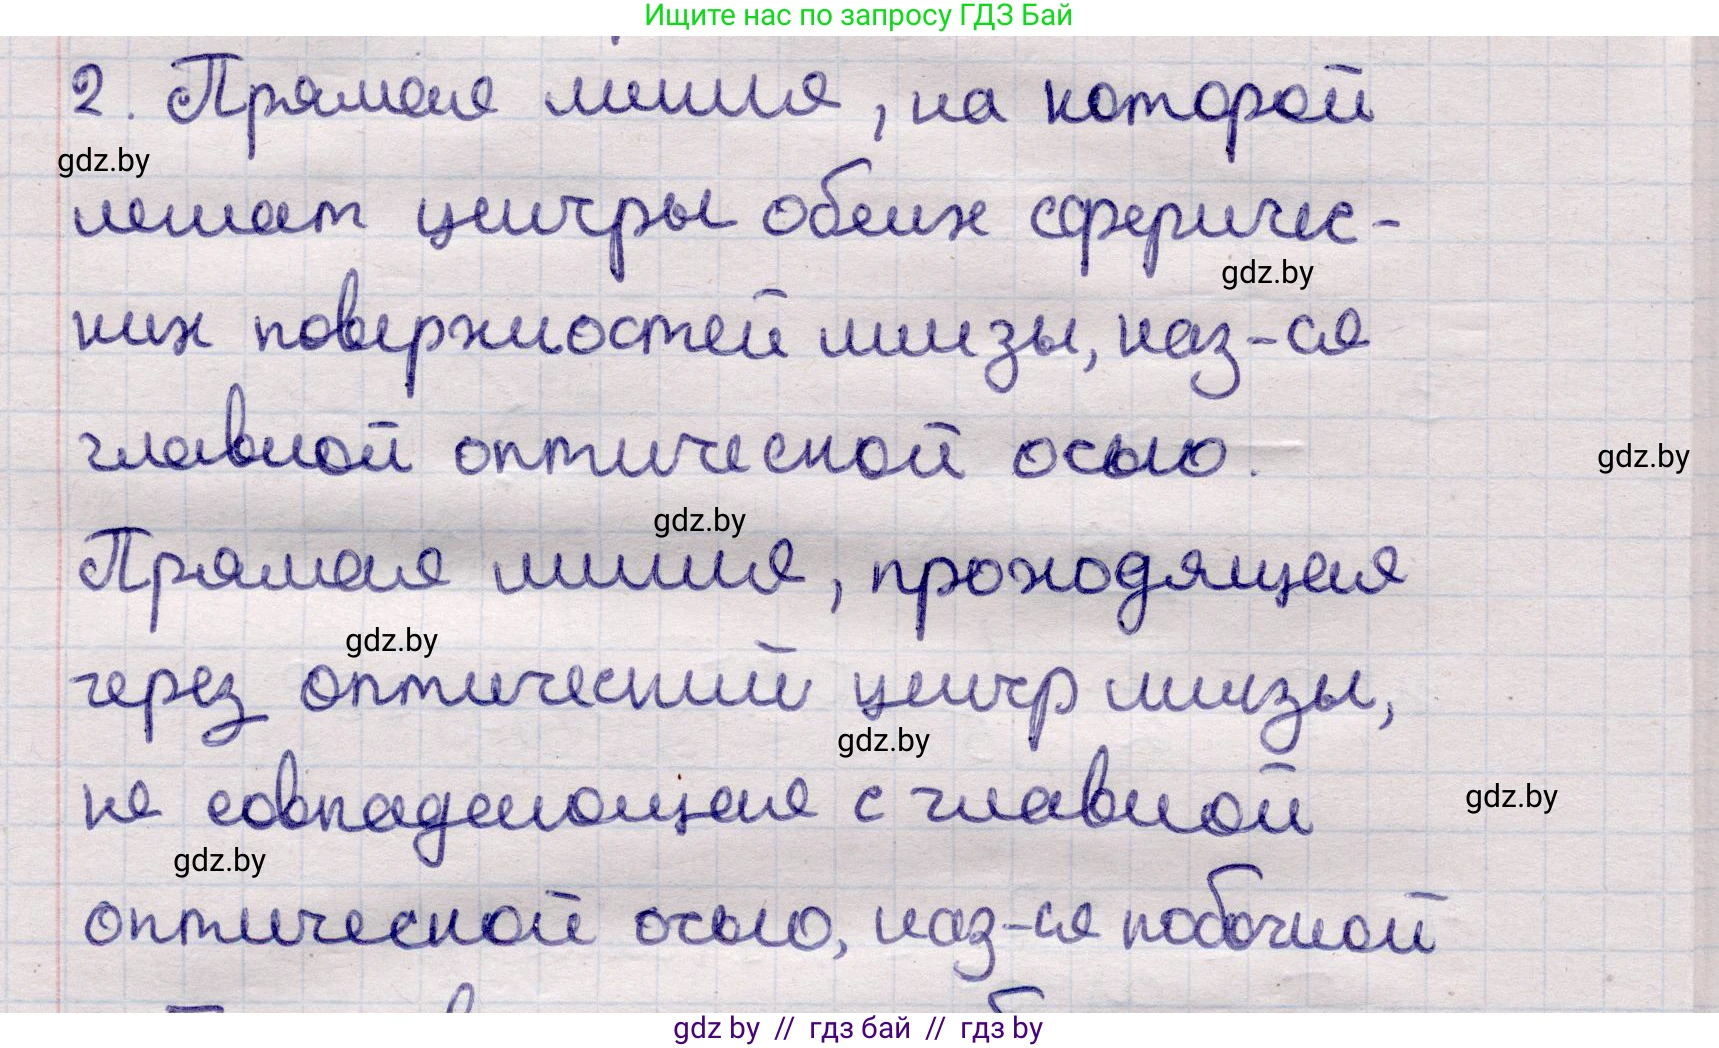 Ищите нас по запросу ГДЗ Бай
2. Прямая линия, на которой
gdz.by
лежат центры обеих сферичес-
gdz.by
ких поверхностей линзы, наз-ся
главной оптической осью.
gdz.by
gdz.by
Прямая линия, проходящая
gdz.by
через оптический центр линзы,
gdz.by
не совпадающая с главной
gdz.by
gdz.by
оптической осью, наз-ся побочной
gdz by // гдз бай // гдз by